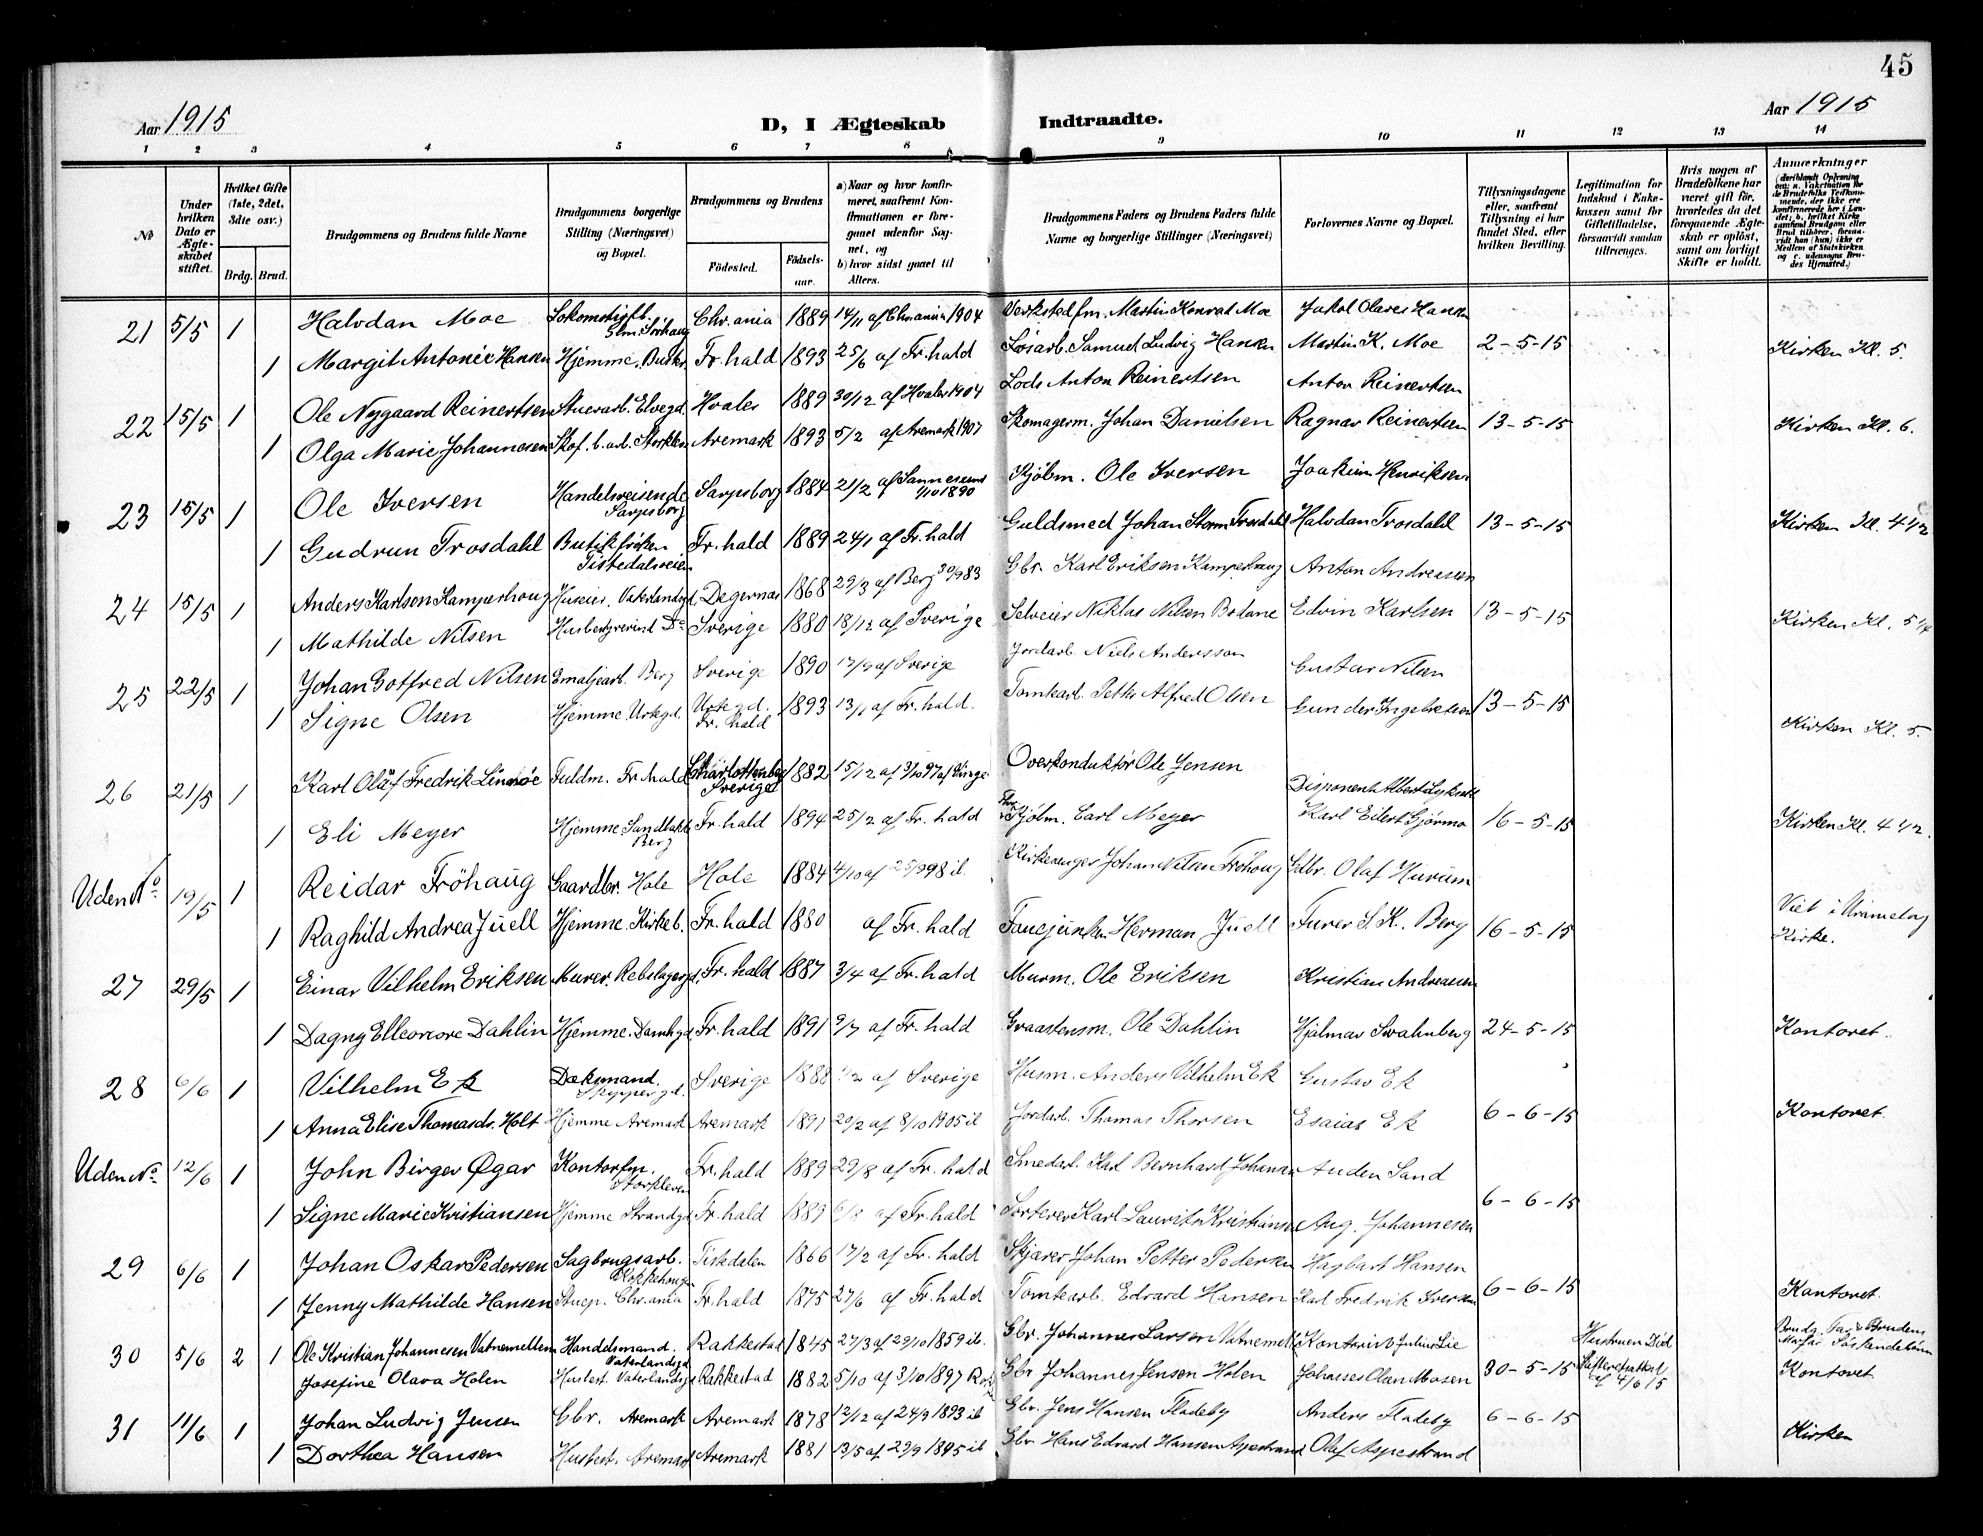 45
Aar 1915
D, I Ægteskab Indtraadte.
Aar 1915
1 2 3 4 5 6 7 8 9 10 11 12 13 14
No
Under hvilken Dato er Ægteskabet stiftet.
Hvilket Gifte (1ste, 2det, 3die osv.)
Brdg. Brud.
Brudgommens og Brudens fulde Navne
Brudgommens borgerlige Stilling (Næringsvei) og Bopæl.
Brudgommens og Brudens
Fødested. Fødselsaar.
a) Naar og hvor konfirmeret, saafremt Konfirmationen er foregaaet udenfor Sognet, og
b) hvor sidst gaaet til Alters.
Brudgommens Faders og Brudens Faders fulde Navne og borgerlige Stillinger (Næringsvei)
Forlovernes Navne og Bopæl.
Tillysningsdagene eller, saafremt Tillysning ei har fundet Sted, efter hvilken Bevilling.
Legitimation for Indskud i Enkekassen samt for Giftetilladelse, forsaavidt saadan tiltrænges.
Hvis nogen af Brudefolkene har været gift før, hvorledes da det foregaaende Ægteskab er opløst, samt om lovligt Skifte er holdt.
Anmærkninger
21 5/5 1 Halvdan Moe Chr.ania 1889 14/11 af Chr.ania 1904 Verkstedfm. Martin Konrad Moe Jakob Olaves Hansen
1 Margit Antonie Hansen Hjemme. Fr. hald 1893 25/6 af Fr. hald Løsarb. Samuel Ludvig Hansen Martin K. Moe 2-5-15 Kirken Kl. 5.
22 15/5 1 Ole Nygaard Reinertsen Stuerarb. Elvegd. Hvaler 1889 30/12 af Hvaler 1904 Lods Anton Reinertsen Anton Reinertsen
1 Olga Marie Johannesen Skof. b. arb. Storklev. Aremark 1893 5/2 af Aremark 1907 Skomagerm. Johan Danielsen Ragnar Reinertsen 13-5-15 Kirken Kl. 6.
23 15/5 1 Ole Iversen Handelsreisende Sarpsborg Sarpsborg 1884 21/2 af Sannesund Kjøbm. Ole Iversen Joakim Henriksen
1 Gudrun Trosdahl Butikfrøken Tistedalsveien Fr. hald 1889 24/1 af Fr. hald Guldsmed Johan Storm Trosdahl Halvdan Trosdahl 13-5-15 Kirken Kl. 4 1/2
24 15/5 1 Anders Karlson Kamperhoug Huseier, Vaterlandsgd. Degernes 1868 29/3 af Berg 30/9 83 Gbr. Karl Eriksen Kamperhaug Anton Andreasen
1 Mathilde Nilsen Husbestyrerind Do Sverige 1880 18/12 af Sverige Selveier Niklas Nilsen Bodane Edvin Karlsen 13-5-15 Kirken Kl. 5 1/4
25 22/5 1 Johan Gotfred Nilsen Emaljearb. Berg Sverige 1890 17/9 af Sverige Jordarb. Niels Andersson Gustav Nilsen
1 Signe Olsen Hjemme Urtegd. Urtegd. Fr. hald 1893 13/1 af Fr. hald. Tomtearb. Petter Alfred Olsen Gunder Ingebretsen 13-5-15 Kirken Kl. 5.
26 21/5 1 Karl Olaf Fredrik Lindøe Fuldm. Fr. hald Charlottenberg Sverige 1882 15/12 af 3/10 97 af Vinge Overkonduktør Ole Jensen Disponent Albert
1 Eli Meyer Hjemme Sandbakk. Berg Fr. hald 1894 25/2 af Fr. hald Kjøbm. Carl Meyer Karl Eilert Gjørmo 16-5-15 Kirken Kl. 4 1/2.
Uden No. 19/5 1 Reidar Fröhaug Gaardbr. Hole Hole 1884 4/10 af 25/9 98 ib. Kirkesanger Johan Nilsen Fröhoug Gdbr. Olaf Hurum
1 Raghild Andrea Juell Hjemme. Kirkeb. Fr. hald 1880 af Fr. hald Herman Juell Furer S. K. Berg 16-5-15 Viet i Uranienborg Kirke.
27 29/5 1 Einar Vilhelm Eriksen Murer. Rebslagergd. Fr. hald 1887 3/4 af Fr. hald Murm. Ole Eriksen Kristian Andreasen
1 Dagny Elleonore Dahlin Hjemme. Damhgd. Fr. hald 1891 9/7 af Fr. hald Graastensm. Ole Dahlin Hjalmar Svahnberg 24-5-15 Kontoret.
28 6/6 1 Vilhelm Ek Dæksmand. Skippergd. Sverige 1888 af Sverige Husm. Anders Vilhelm Ek Gustav Ek
1 Anna Elise Thomasdr. Holt Hjemme Aremark Aremark 1891 20/2 af 8/10 1905 ib Jordarb. Thomas Thorsen Esaias Ek 6-6-15 Kontoret.
Uden No. 12/6 1 John Birger Øgar Kontorfm. Storkleven Fr. hald 1889 29/8 af Fr. hald Smedarb. Karl Bernhard Johansen Auden Sand
1 Signe Marie Kristiansen Hjemme Strandgd. Fr. hald 1889 6/8 af Fr. hald Sorterer Karl Laurits Kristiansen Aug. Johannesen 6-6-15
29 6/6 1 Johan Oskar Pedersen Sagbrugsarb. Tistedalen 1866 17/2 af Fr. hald Skjærer Johan Petter Pedersen Hagbart Hansen
1 Jenny Mathilde Hansen Stuep. Chr.ania Fr. hald 1875 27/6 af Fr. hald Tomtearb. Edvard Hansen Karl Fredrik Iversen 6-6-15 Kontoret.
30 5/6 2 1 Ole Kristian Johannesen Vatnemellem Handelsmand. Vaterlandsgd Rakkestad 1845 27/3 af 29/10 1859 ib. Gbr. Johannes Larsen Vatnemell. Kontorist Julius Lie Hustruen Død Skifteretsattest af 4/6 15
Josefine Olava Holen Husbest. Vaterlandsgd Rakkestad 1882 5/10 af 3/10 1897 Rak. Gbr Johannes Jensen Holen Johannes Olsen Mosen 30-5-15 Kontoret
31 11/6 1 Johan Ludvig Jensen Gbr. Aremark Aremark 1878 12/12 af 24/9 1893 ib Gbr. Jens Hansen Fladeby Anders Fladeby 6-6-15 Kirken
1 Dorthea Hansen Husbest. Aremark Aremark 1881 13/5 af 29/9 1895 ib Gbr. Hans Edvard Hansen Aspestrand Olaf Aspestrand